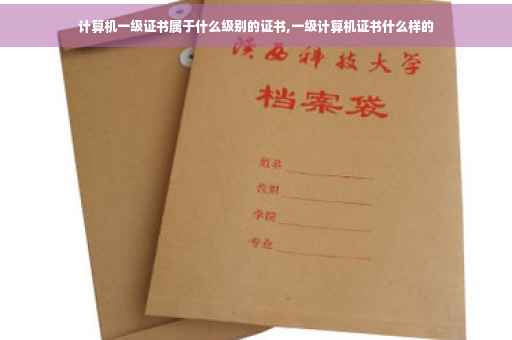 计算机一级证书属于什么级别的证书,一级计算机证书什么样的
陕西科技大学
档案袋
学院
专业